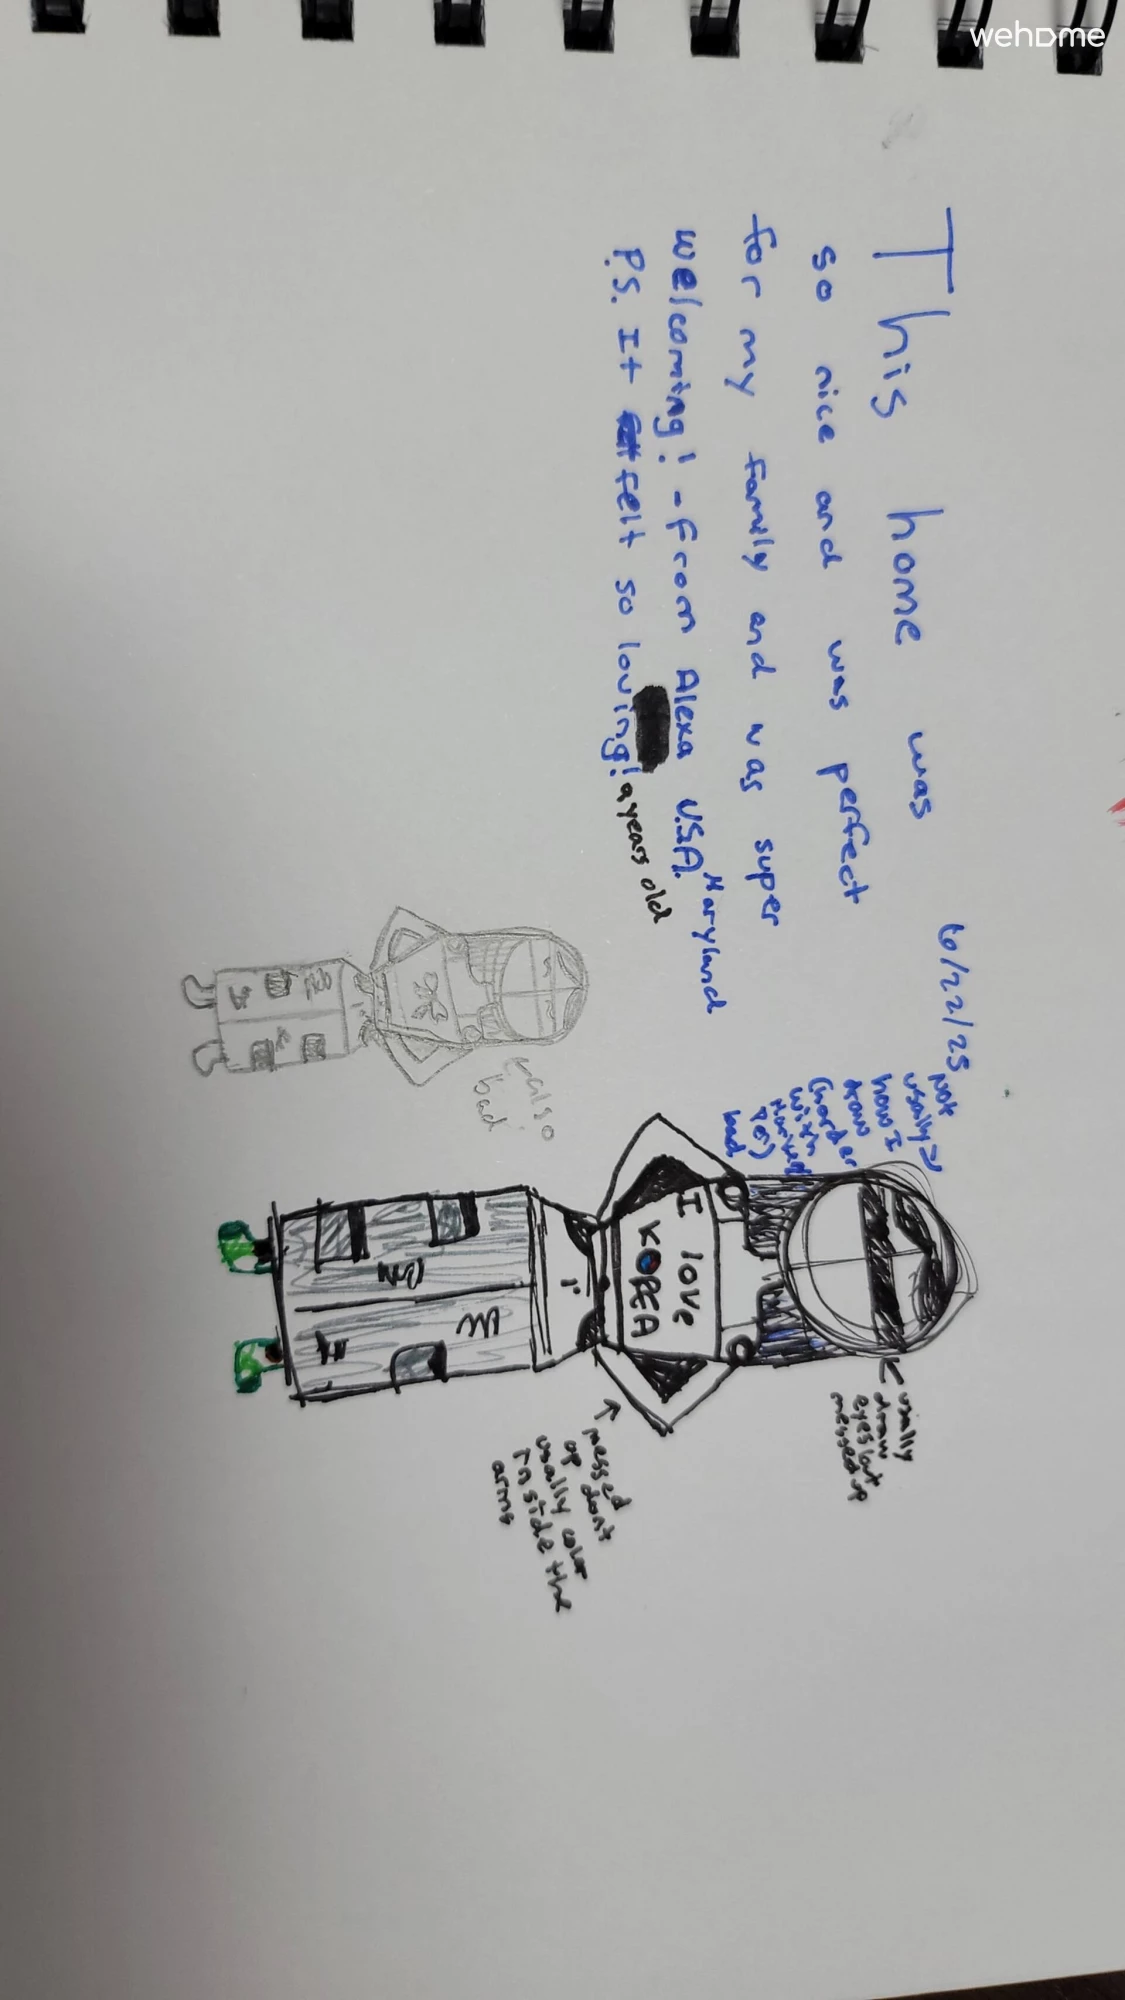 wehome
6/22/25
This home was
so nice and was perfect
for my family and was super
welcoming! - From Alexa U.S.A. Maryland
P.S. It felt so loving! 9 years old
Not
usally
how I
draw
(harder
with
Marker
too)
bad
← usally
draw
eyes but
messed up
I love
KOREA
← messed
up don't
usally color
in side the
arms
← also
bad